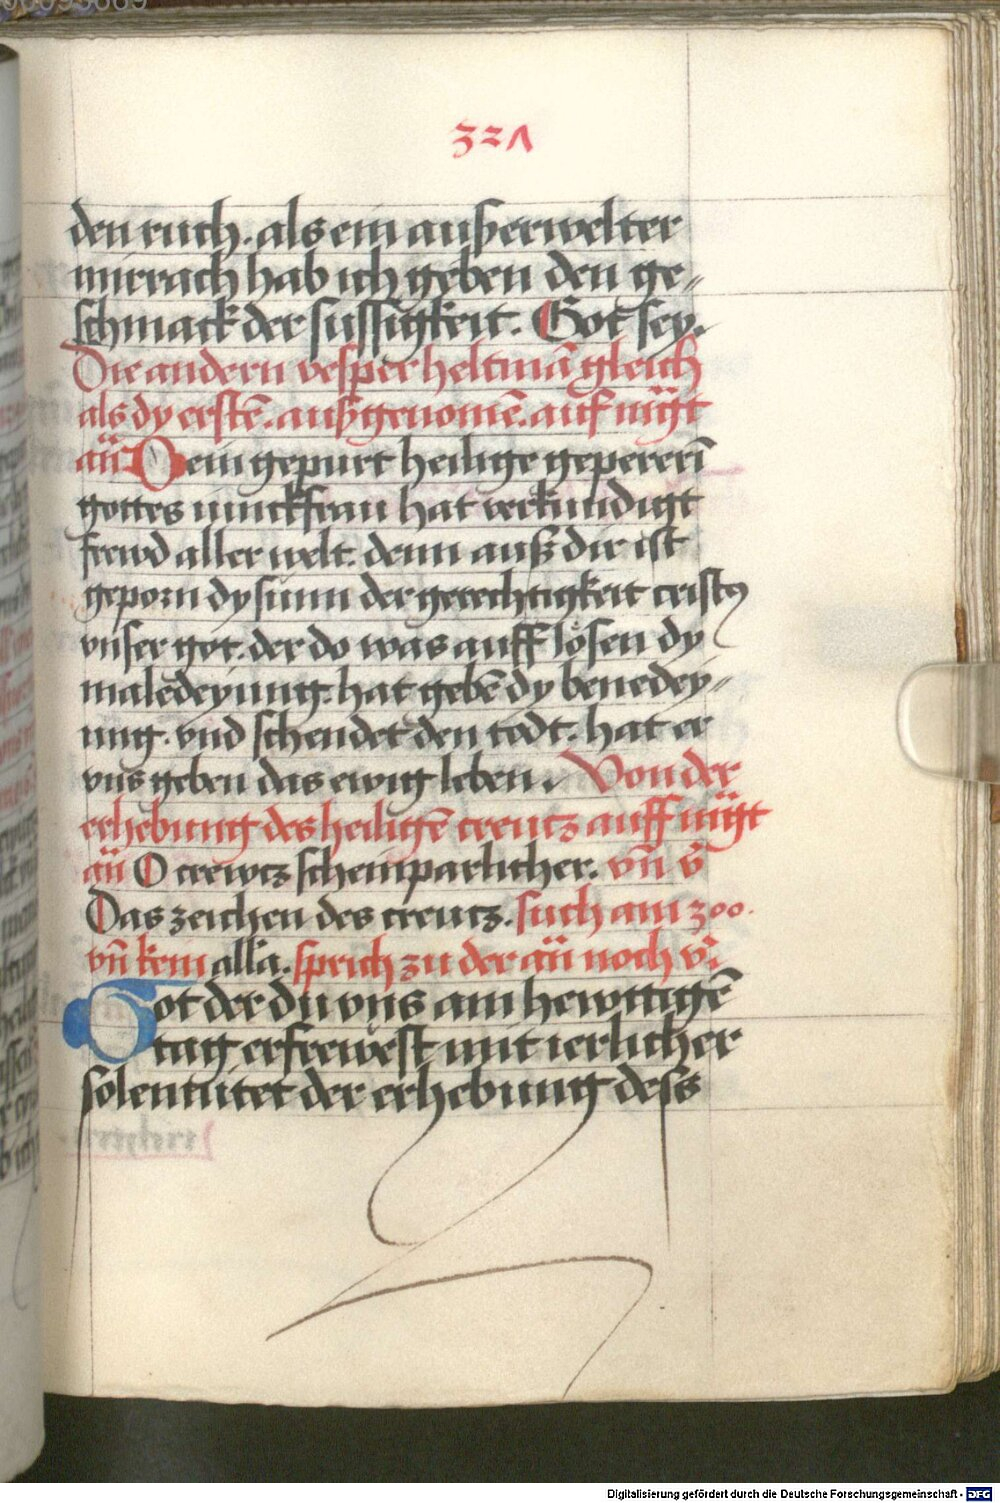 327
den ruch. als ein außerwelter
mirrach hab ich geben den ge⸗
schmack der sussigkeit. Got sey.
Die andern vesper helt mā gleich
als dy erstē. außgenomē. auf mg̃t
añ Dein gepurt heilige gepererī
gottes iunckfrau hat verkundigt
frewd aller welt. denn auß dir ist
geporn dy sunn der gerechtigkeit cristꝰ
vnser got. der do was aufflösen dy
maledeyung. hat gebē dy benedey⸗
ung. vnd schendet den todt. hat er
vns geben das ewig leben. Von der
erhebung des heiligē creutz auff mg̃t
añ O crewcz scheinparlicher. vn̄ v̄
Das zeichen des creutz. such am 300.
vn̄ kein alla. sprich zu der añ noch v̄
Got der du vns am hewttigē
tag erfrewest mit ierlicher
solennitet der erhebung dess
Digitalisierung gefördert durch die Deutsche Forschungsgemeinschaft - DFG